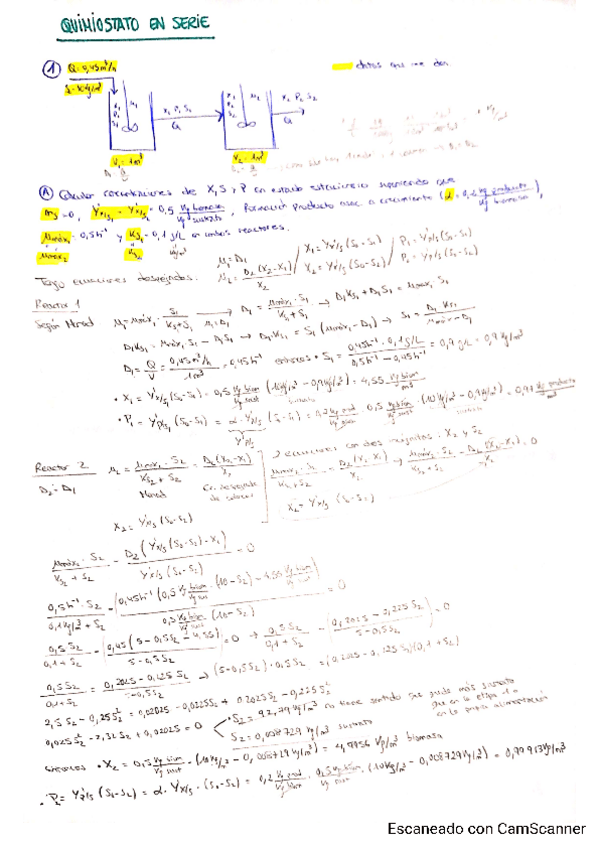 QUIMIOSTATO EN SERIE
① Q = 0,45 m³/h
datos que me dan
X₁ P₁ S₁
X₂ P₂ S₂
Q
Q
V₁ = 1m³
V₂ = 1m³
Ⓐ Calcular concentraciones de X, S y P en estado estacionario suponiendo que
= 0, Y'x/s₁ = Y'x/s₂ = 0,5 kg biomasa / kg sustrato, formación producto asoc. a crecimiento (α = 0,2 kg producto / kg biomasa),
μmáx₁ = 0,5 h⁻¹ y Ks₁ = 0,1 g/L en ambos reactores.
μmáx₂ Ks₂
Tengo ecuaciones despejadas: μ₁ = D₁ / X₁ = Y'x/s (S₀-S₁) / P₁ = Y'p/s (S₀-S₁)
μ₂ = D₂ (X₂-X₁) / X₂ / X₂ = Y'x/s (S₀-S₂) / P₂ = Y'p/s (S₀-S₂)
Reactor 1
Según Monod μ₁ = μmáx₁ · S₁ / Ks₁ + S₁ → μ₁ = D₁ D₁ = μmáx₁ · S₁ / Ks₁ + S₁ → D₁Ks₁ + D₁S₁ = μmáx₁ S₁
D₁Ks₁ = μmáx₁ S₁ - D₁S₁ → D₁Ks₁ = S₁ (μmáx₁ - D₁) → S₁ = D₁ Ks₁ / μmáx - D₁
D₁ = Q/V = 0,45 m³/h / 1m³ = 0,45 h⁻¹ entonces • S₁ = 0,45h⁻¹ · 0,1 g/L / 0,5 h⁻¹ - 0,45 h⁻¹ = 0,9 g/L = 0,9 kg/m³
• X₁ = Y'x/s (S₀-S₁) = 0,5 kg biom / kg sust (10 kg/m³ - 0,9 kg/m³) = 4,55 kg biom / m³
• P₁ = Y'p/s (S₀-S₁) = α · Y'x/s (S₀-S₁) = 0,2 kg prod / kg biom · 0,5 kg biom / kg sust (10 kg/m³ - 0,9 kg/m³) = 0,91 kg producto / m³
Y'p/s
Reactor 2
D₂ = D₁
μ₂ = μmáx · S₂ / Ks₂ + S₂ = D₂ (X₂-X₁) / X₂
Monod
Ec. despejada
2 ecuaciones con dos incógnitas: X₂ y S₂
X₂ = Y'x/s (S₀-S₂)
X₂ = Y'x/s (S₀-S₂)
μmáx₂ · S₂ / Ks₂ + S₂ - D₂ (Y'x/s (S₀-S₂) - X₁) / Y'x/s (S₀-S₂) = 0
0,5 h⁻¹ · S₂ / 0,1 kg/m³ + S₂ - (0,45 h⁻¹ (0,5 kg biom / kg sust · (10-S₂) - 4,55 kg biom / m³) / 0,5 kg biom / kg sust (10-S₂)) = 0
0,5 S₂ / 0,1 + S₂ - (0,45 (5 - 0,5 S₂ - 4,55) / 5 - 0,5 S₂) = 0 → 0,5 S₂ / 0,1 + S₂ - (0,2025 - 0,225 S₂ / 5 - 0,5 S₂) = 0
0,5 S₂ / 0,1 + S₂ = 0,2025 - 0,225 S₂ / 5 - 0,5 S₂ → (5 - 0,5 S₂) · 0,5 S₂ = (0,2025 - 0,225 S₂)(0,1 + S₂)
2,5 S₂ - 0,25 S₂² = 0,02025 - 0,0225 S₂ + 0,2025 S₂ - 0,225 S₂²
0,025 S₂² - 2,32 S₂ + 0,02025 = 0
• S₂ = 92,79 kg/m³ no tiene sentido que quede más sustrato
S₂ = 0,008729 kg/m³ sustrato
entonces • X₂ = 0,5 kg biom / kg sust · (10 kg/m³ - 0,008729 kg/m³) = 4,9956 kg/m³ biomasa
• P₂ = Y'p/s (S₀-S₂) = α · Y'x/s · (S₀-S₂) = 0,2 kg prod / kg biom · 0,5 kg biom / kg sust · (10 kg/m³ - 0,008729 kg/m³) = 0,99913 kg/m³
Escaneado con CamScanner